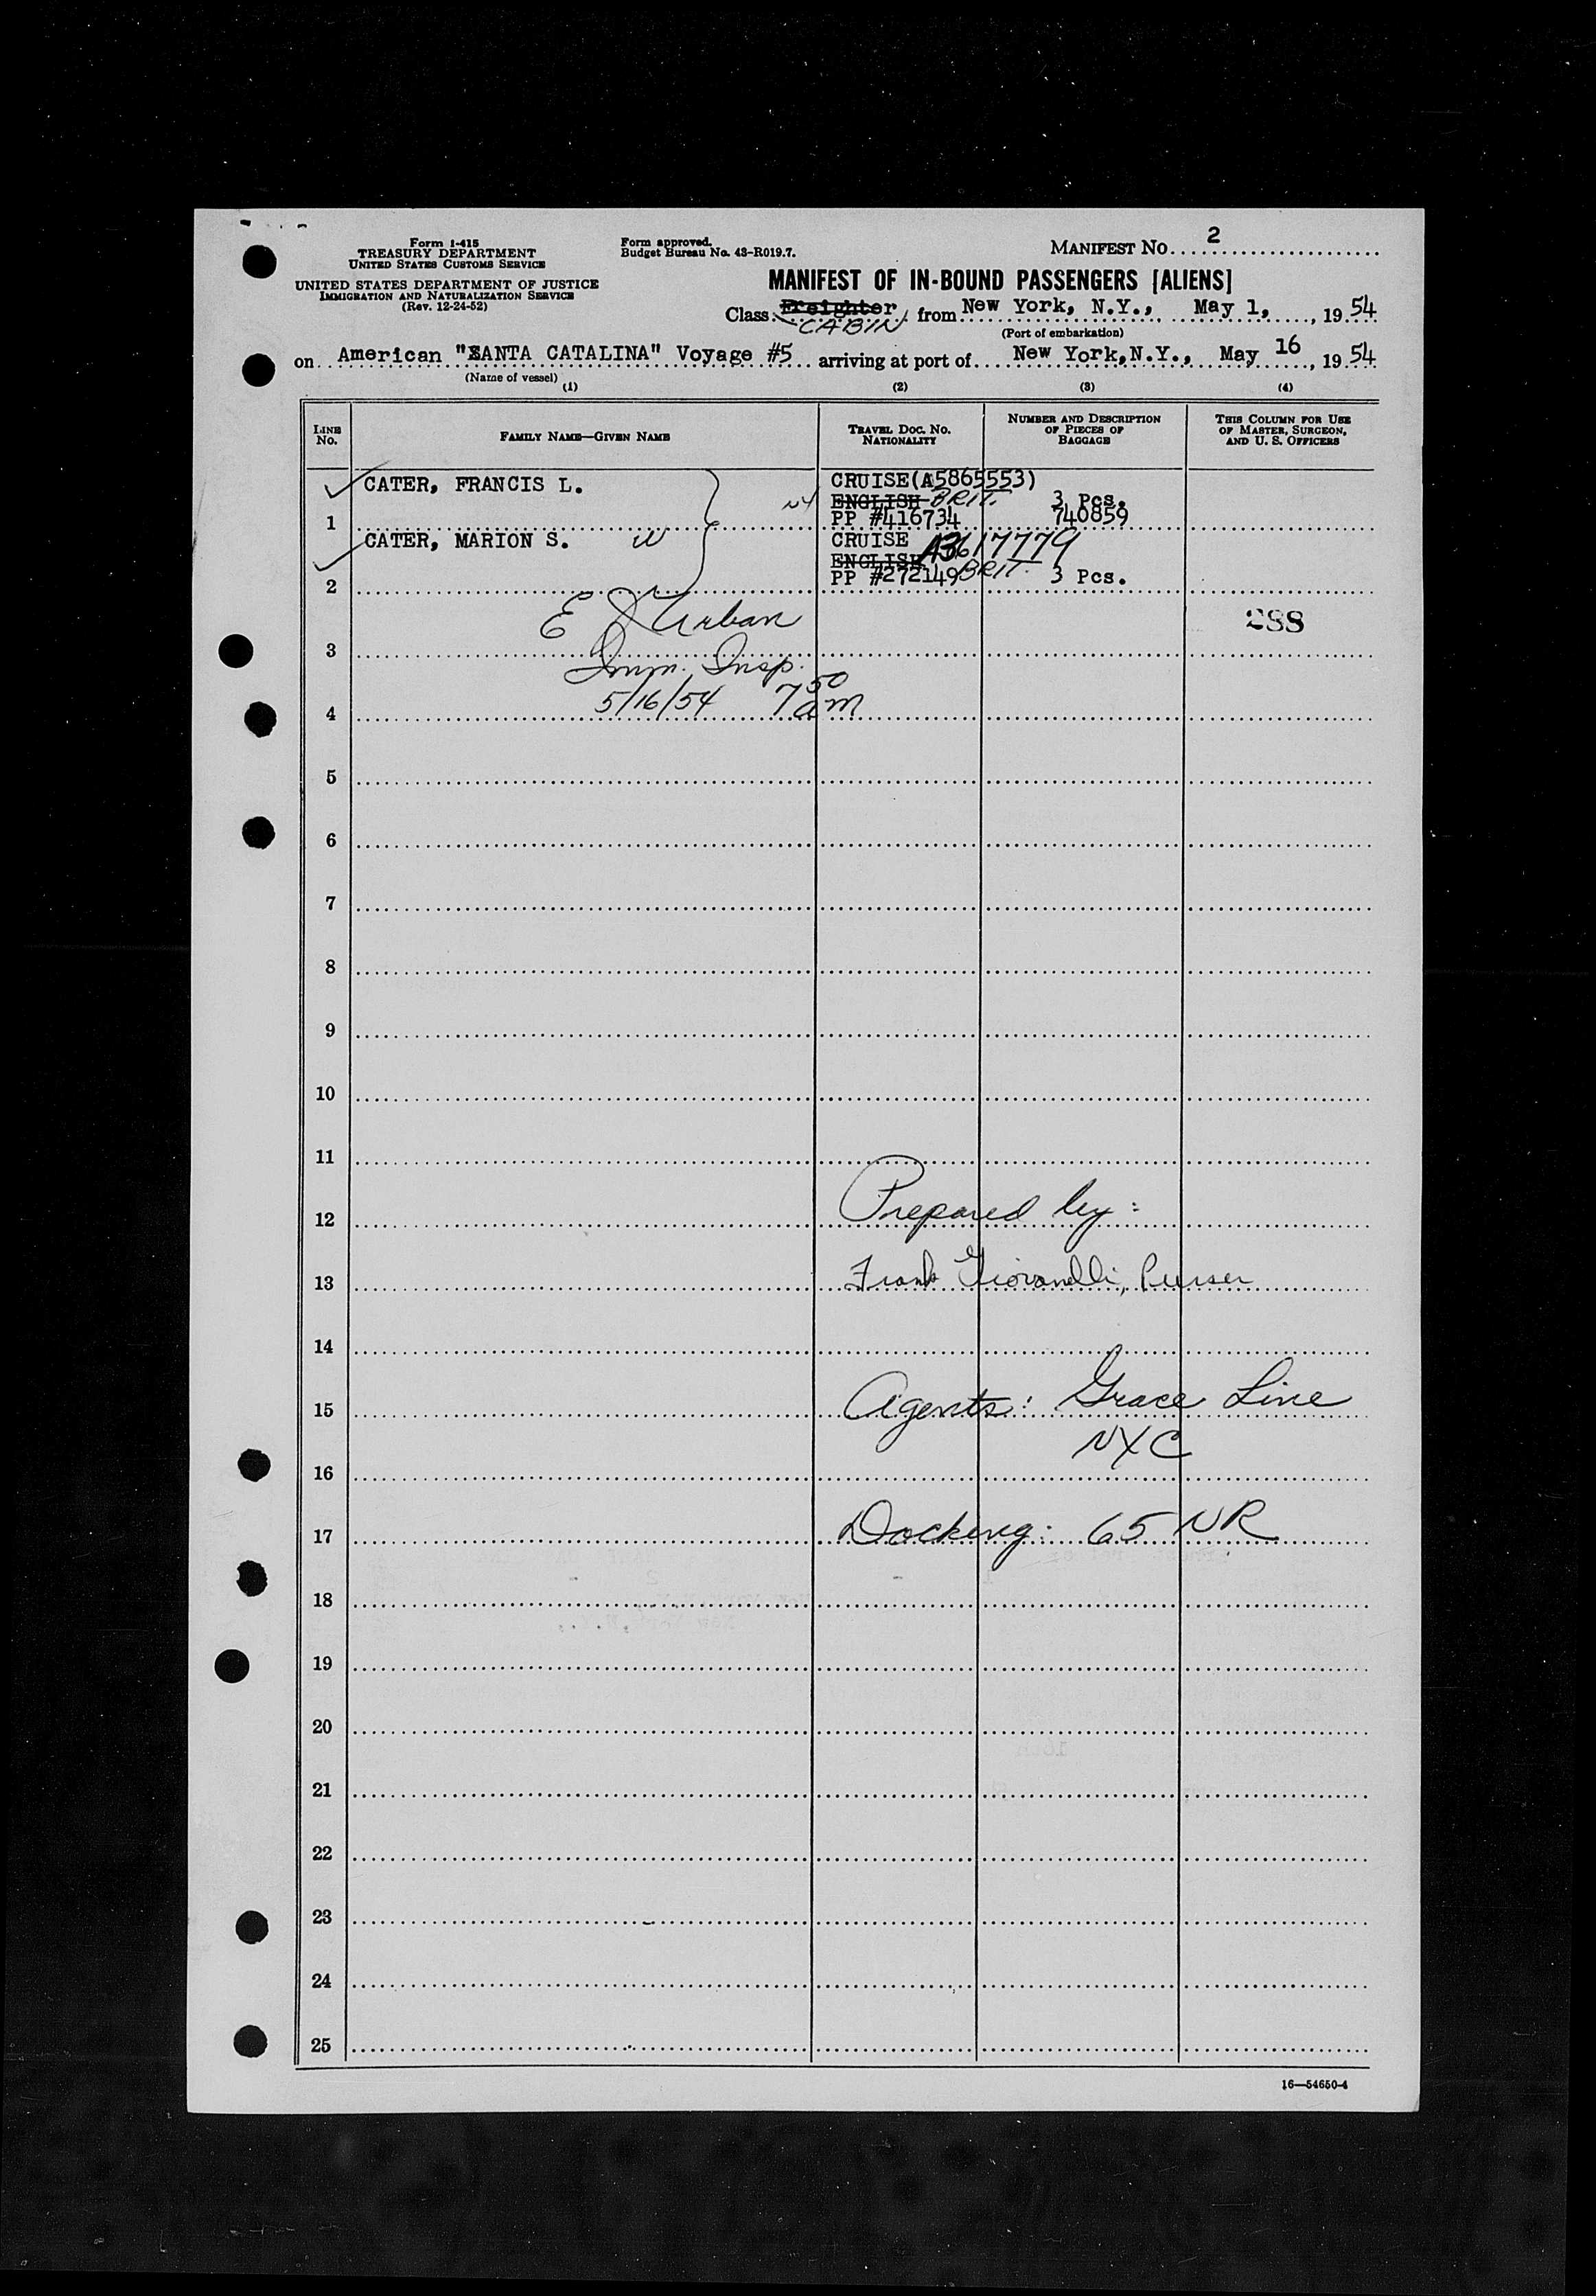 Form I-415
TREASURY DEPARTMENT
UNITED STATES CUSTOMS SERVICE
UNITED STATES DEPARTMENT OF JUSTICE
IMMIGRATION AND NATURALIZATION SERVICE
(Rev. 12-24-52)
Form approved.
Budget Bureau No. 43-R019.7.
MANIFEST NO. 2
MANIFEST OF IN-BOUND PASSENGERS [ALIENS]
Class Freighter from New York, N.Y., May 1, 1954
CABIN
(Port of embarkation)
on American "SANTA CATALINA" Voyage #5 arriving at port of New York, N.Y., May 16, 1954
(Name of vessel)
(1) (2) (3) (4)
LINE NO.
FAMILY NAME—GIVEN NAME
TRAVEL DOC. NO. NATIONALITY
NUMBER AND DESCRIPTION OF PIECES OF BAGGAGE
THIS COLUMN FOR USE OF MASTER, SURGEON, AND U. S. OFFICERS
CATER, FRANCIS L. CRUISE(A5865553)
NY ENGLISH BRIT. 3 Pcs.
1 PP #416734 740859
CATER, MARION S. W CRUISE A3617779
ENGLISH BRIT.
2 PP #272149 3 Pcs.
E J Urban 288
3 Imm. Insp.
4 5/16/54 7 50 am
5
6
7
8
9
10
11
12 Prepared by:
13 Frank Giovanelli, Purser
14
15 Agents: Grace Line
NYC
16
17 Docking: 65 NR
18
19
20
21
22
23
24
25
16—54650-4